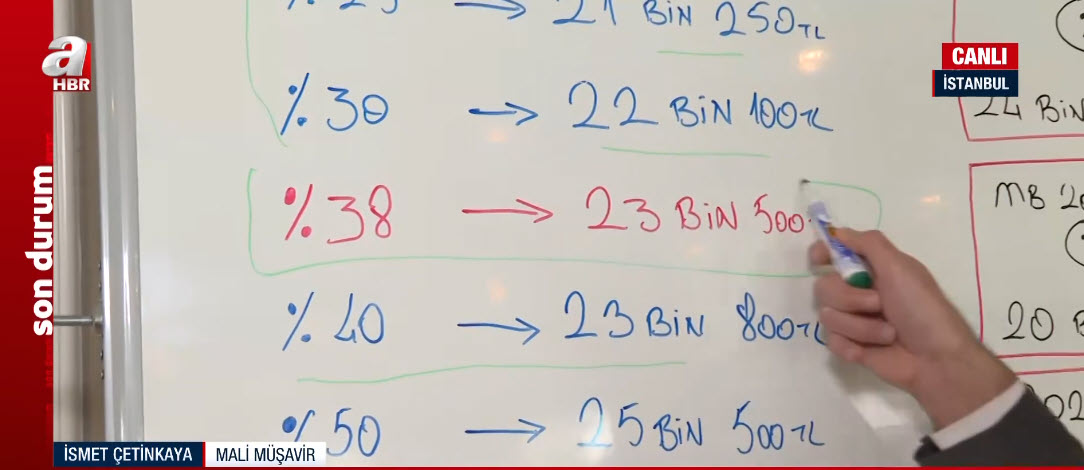 a
HBR
CANLI
İSTANBUL
son durum
21 BİN 250TL
%30 → 22 BİN 100TL
%38 → 23 BİN 500
%40 → 23 BİN 800TL
%50 → 25 BİN 500TL
24 BİN
MB
20
İSMET ÇETİNKAYA
MALİ MÜŞAVİR